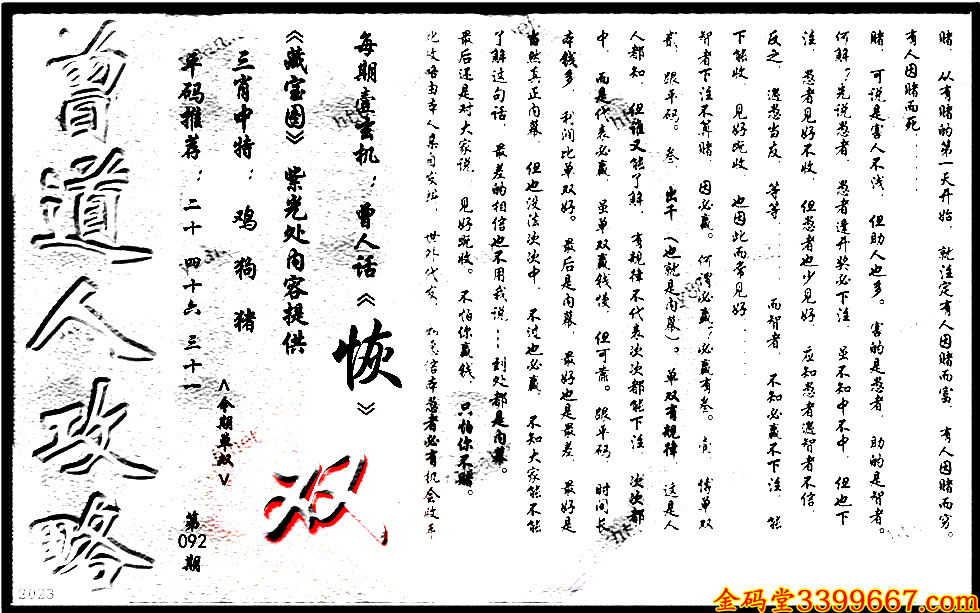 赌、从有赌的第一天开始、就注定有人因赌而富、有人因赌而穷。
有人因赌而死......
赌、可说是害人不浅、但助人也多。害的是愚者、助的是智者。
何解？先说愚者、愚者逢开奖必下注、虽不知中不中、但也下
注、愚者见好不收、但愚者也少见好、应知愚者遇智者不信、
反之、遇愚当度、等等......而智者、不知必赢不下注、能
下能收、见好就收、也因此而常见好......
智者下注不算赌、因必赢。何谓必赢？必赢有叁。壹、博单双
贰、跟平码。叁、出千（也就是内幕）。单双有规律、这是人
人都知、但谁又能了解、有规律不代表次次都能下注、次次都
中、而是代表必赢、虽单双赢钱慢、但可靠。跟平码、时间长
本钱多、利润比单双好。最后是内幕、最好也是最差、最好是
当然真正内幕、但也没法次次中、不过也必赢、不知大家能不能
了解这句话、最差的相信也不用我说：...到处都是内幕。
最后还是对大家说、见好就收。不怕你赢钱、只怕你不赌。
此攻略由本人亲自发放、世外代友、
者必有机会收车
每期玄机：曾人话《恢》
《藏宝图》紫光处内容提供
三肖中特：鸡 狗 猪
单码推荐：二十 四十六 三十一
<今期单双>
双
第
092
期
曾道人攻略
2023
金码堂3399667.com